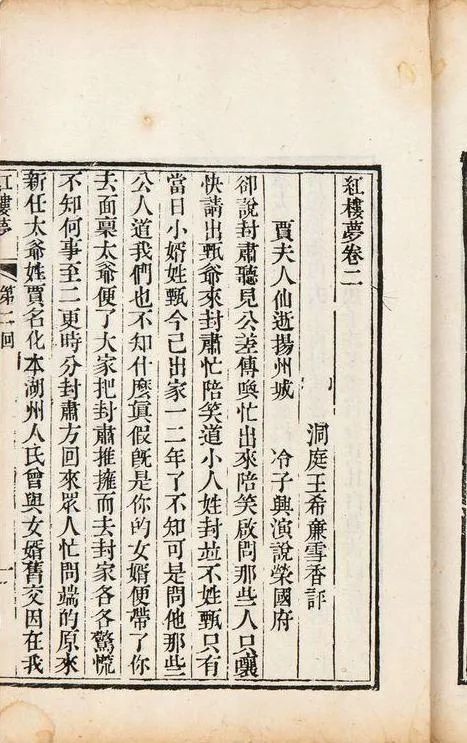 紅樓夢卷二
洞庭王希廉雪香評
賈夫人仙逝揚州城 冷子興演說榮國府
卻說封肅聽見公差傳喚忙出來陪笑啟問那些人只嚷
快請出甄爺來封肅忙陪笑道小人姓封並不姓甄只有
當日小婿姓甄今已出家一二年了不知可是問他那些
公人道我們也不知什麼真假旣是你的女婿便帶了你
去面稟太爺便了大家把封肅推擁而去封家各各驚慌
不知何事至二更時分封肅方回來眾人忙問端的原來
新任太爺姓賈名化本湖州人氏曾與女婿舊交因在我
紅樓夢 第二回 一